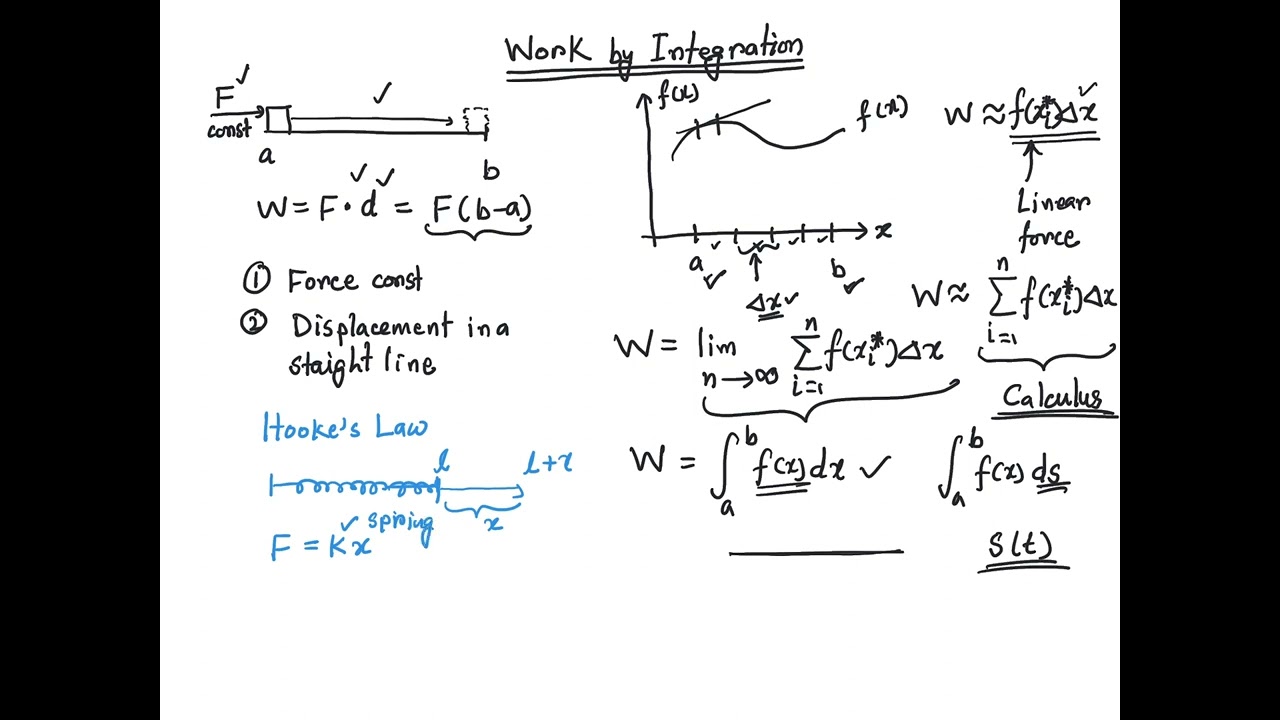 Work by Integration
F ✓
const
✓
a
b
W = F • d = F(b-a)
① Force const
② Displacement in a
staight line
Hooke's Law
l
l+x
x
spring
F = Kx
f(x)
f(x)
x
a
b
Δx ✓
W ≈ f(xᵢ*)Δx
Linear
force
W ≈ ∑ᵢ₌₁ⁿ f(xᵢ*)Δx
Calculus
W = lim n→∞ ∑ᵢ₌₁ⁿ f(xᵢ*)Δx
W = ∫ₐᵇ f(x) dx ✓
∫ₐᵇ f(x) ds
S(t)